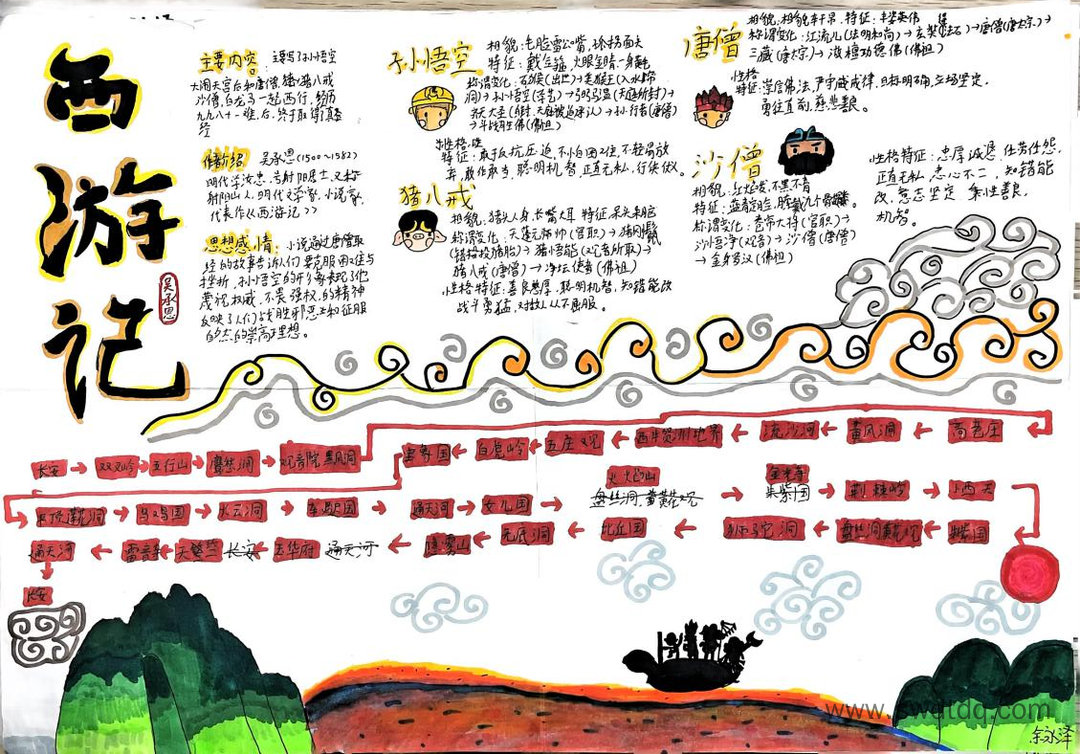 西游记
吴承恩
主要内容 主要写了孙小悟空
大闹天宫后和唐僧、猪八戒
沙僧,白龙马一起西行,经历
九九八十一难后,终于取得了真经
作者介绍 吴承恩(1500~1582)
明代字汝忠,号射阳居士,又称
射阳山人,明代文学家,小说家,
代表作《西游记》
思想感情: 小说通过唐僧取
经的故事告诉人们要克服困难与
挫折,孙小悟空的形象表现了他
蔑视权威,不畏强权,的精神
反映了人们战胜邪恶和征服
自然的崇高理想。
孙小悟空
相貌:毛脸雷公嘴,
特征:戴金箍,火眼金睛,一身
称谓变化:石猴(出世)→美猴王(入水帘
洞)→孙小悟空(学艺)→弼马温(天庭所封)→
齐天大圣(自封,天庭被迫承认)→孙行者(唐僧)
→斗战胜佛(佛祖)
性格
特征:敢于反抗压迫,不小自困难,不轻易放
弃,敢作敢当,聪明机智,正直无私,行侠仗义
猪八戒
相貌:猪头人身,长嘴大耳 特征:呆头呆脑
称谓变化:天蓬元帅(官职)→猪刚鬣
(错投猪胎)→猪悟能(观音所取)→
猪八戒(唐僧)→净坛使者(佛祖)
性格特征:善良憨厚,聪明机智,知错能改
战斗勇猛,对敌人从不屈服。
唐僧
相貌:相貌 特征:丰姿英伟
称谓变化:江流儿(法明和尚)→玄奘(法名)→唐僧(唐太宗)→
三藏(唐太宗)→旃檀功德佛(佛祖)
性格
特征:崇信佛法,严守戒律,目标明确,立场坚定,
勇往直前,慈悲善良。
沙僧
相貌:红发,不黑不青
特征:蓝靛脸,脖戴九个骷髅
称谓变化:卷帘大将(官职)→
沙悟净(观音)→沙僧(唐僧)
→金身罗汉(佛祖)
性格特征:忠厚诚恳,任劳任怨,
正直无私,忠心不二,知错能
改,意志坚定 秉性善良,
机智。
长安→双叉岭→五行山→鹰愁涧→观音院黑风洞
宝象国←白虎岭←五庄观←西牛贺洲地界←流沙河←黄风洞←高老庄
平顶莲花洞→乌鸡国→火云洞→车迟国→通天河→女儿国→火焰山
盘丝洞,黄花观→金光寺
朱紫国→荆棘岭→小西天
通天河←雷音寺←天竺←长安←玉华府 通天河←隐雾山←无底洞←比丘国←狮驼洞←盘丝洞黄花观←朱紫国
长安
徐泳泽